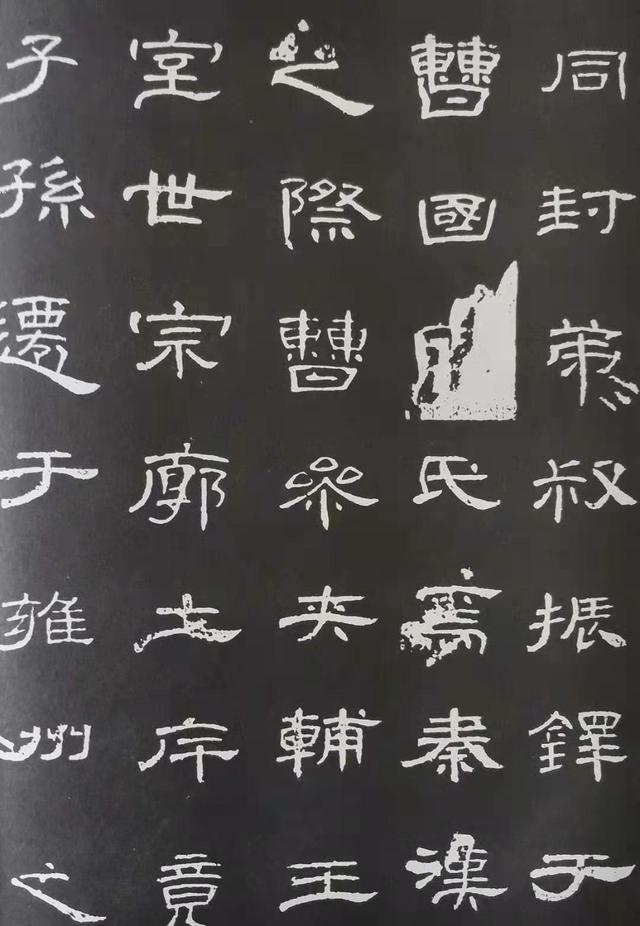 同封弟叔振鐸于
曹國氏焉秦漢
之際曹參夾輔王
室世宗廓土斥竟
子孫遷于雍州之